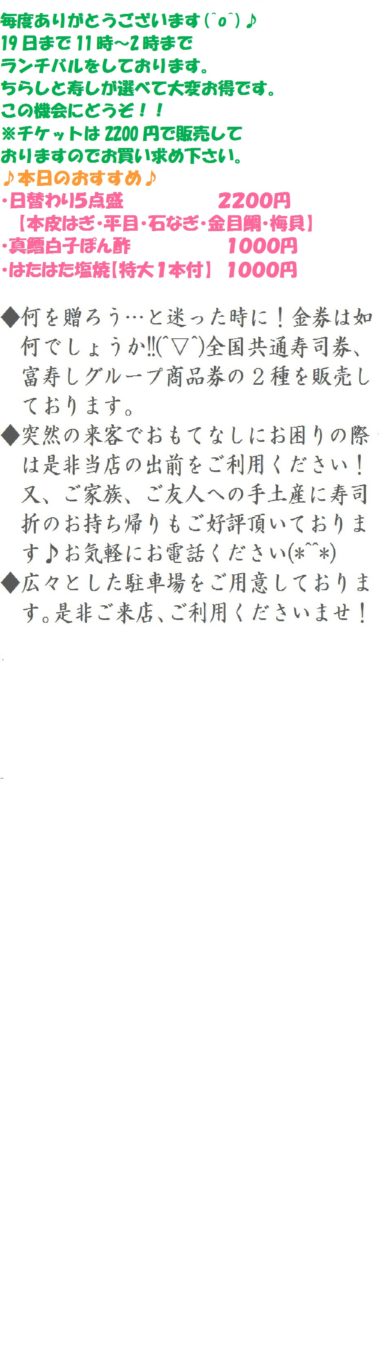 毎度ありがとうございます(^o^)♪
19日まで11時～2時まで
ランチバルをしております。
ちらしと寿しが選べて大変お得です。
この機会にどうぞ！！
※チケットは2200円で販売して
おりますのでお買い求め下さい。
♪本日のおすすめ♪
・日替わり5点盛 2200円
【本皮はぎ・平目・石なぎ・金目鯛・梅貝】
・真鱈白子ぽん酢 1000円
・はたはた塩焼【特大1本付】 1000円
◆何を贈ろう…と迷った時に！金券は如
何でしょうか!!(^▽^)全国共通寿司券、
富寿しグループ商品券の２種を販売し
ております。
◆突然の来客でおもてなしにお困りの際
は是非当店の出前をご利用ください！
又、ご家族、ご友人への手土産に寿司
折のお持ち帰りもご好評頂いておりま
す♪お気軽にお電話ください(*^^*)
◆広々とした駐車場をご用意しておりま
す。是非ご来店、ご利用くださいませ！